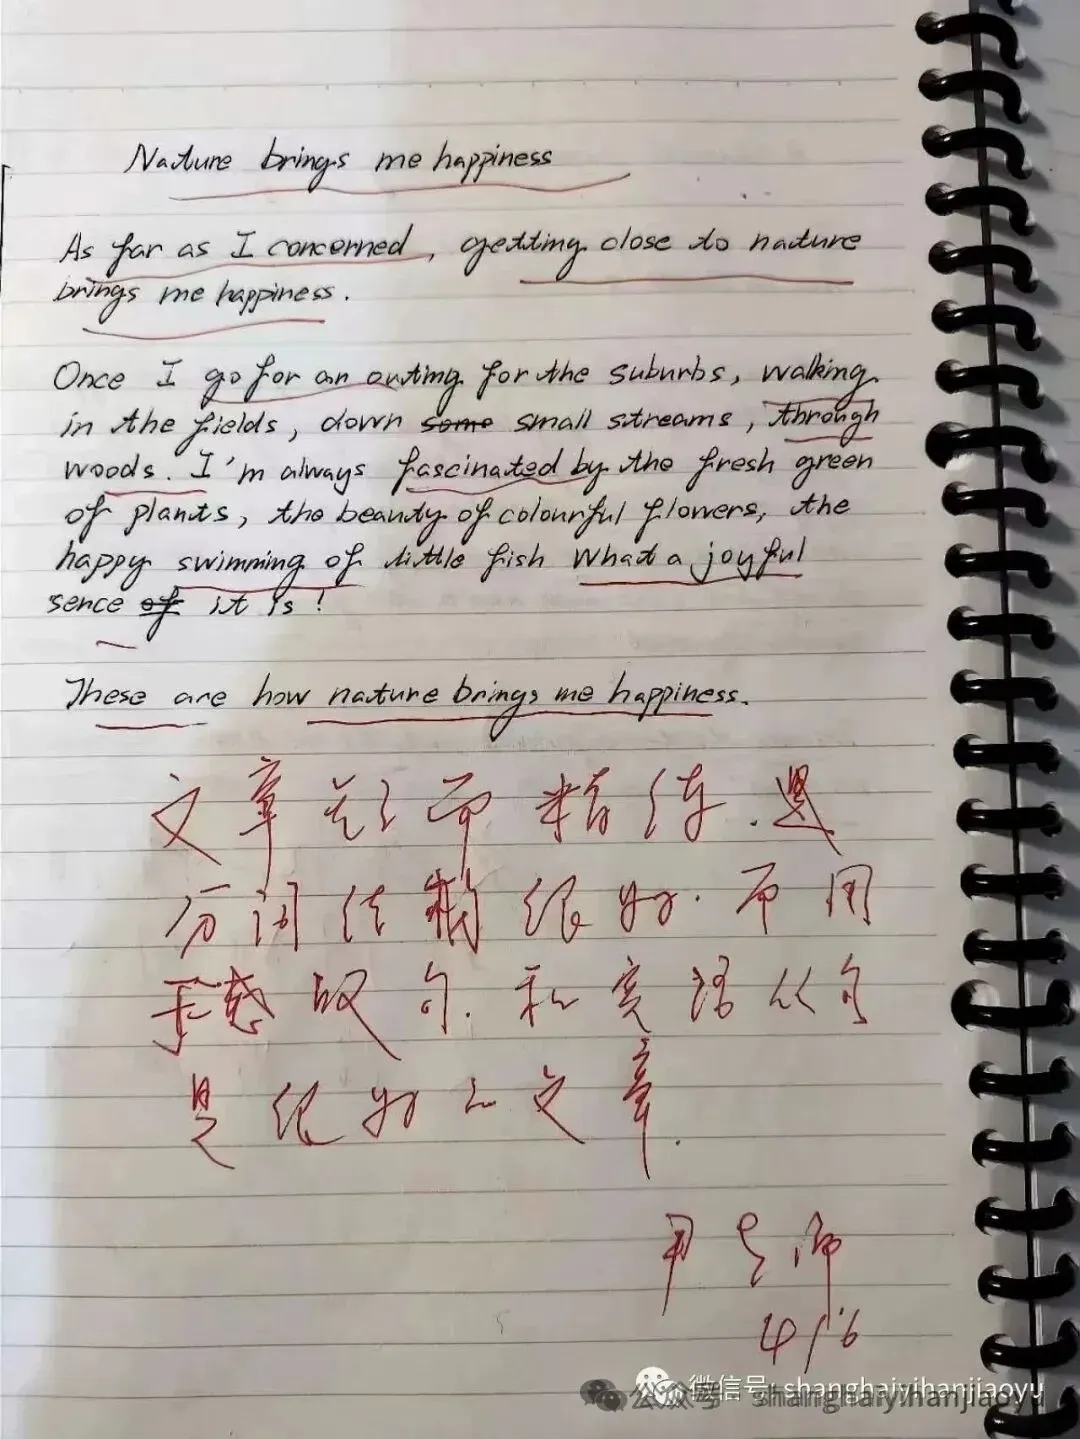 Nature brings me happiness
As far as I concerned, getting close to nature
brings me happiness.
Once I go for an outing for the suburbs, walking
in the fields, down some small streams, through
woods. I'm always fascinated by the fresh green
of plants, the beauty of colourful flowers, the
happy swimming of little fish What a joyful
sence of it is!
These are how nature brings me happiness.
文章短而精练.
很好.而用
感叹句.和宾语从句
是很好的文章.
尹老师
4/6
微信号: shanghaiyihanjiaoyu
公众号 shanghaiyihanjiaoyu